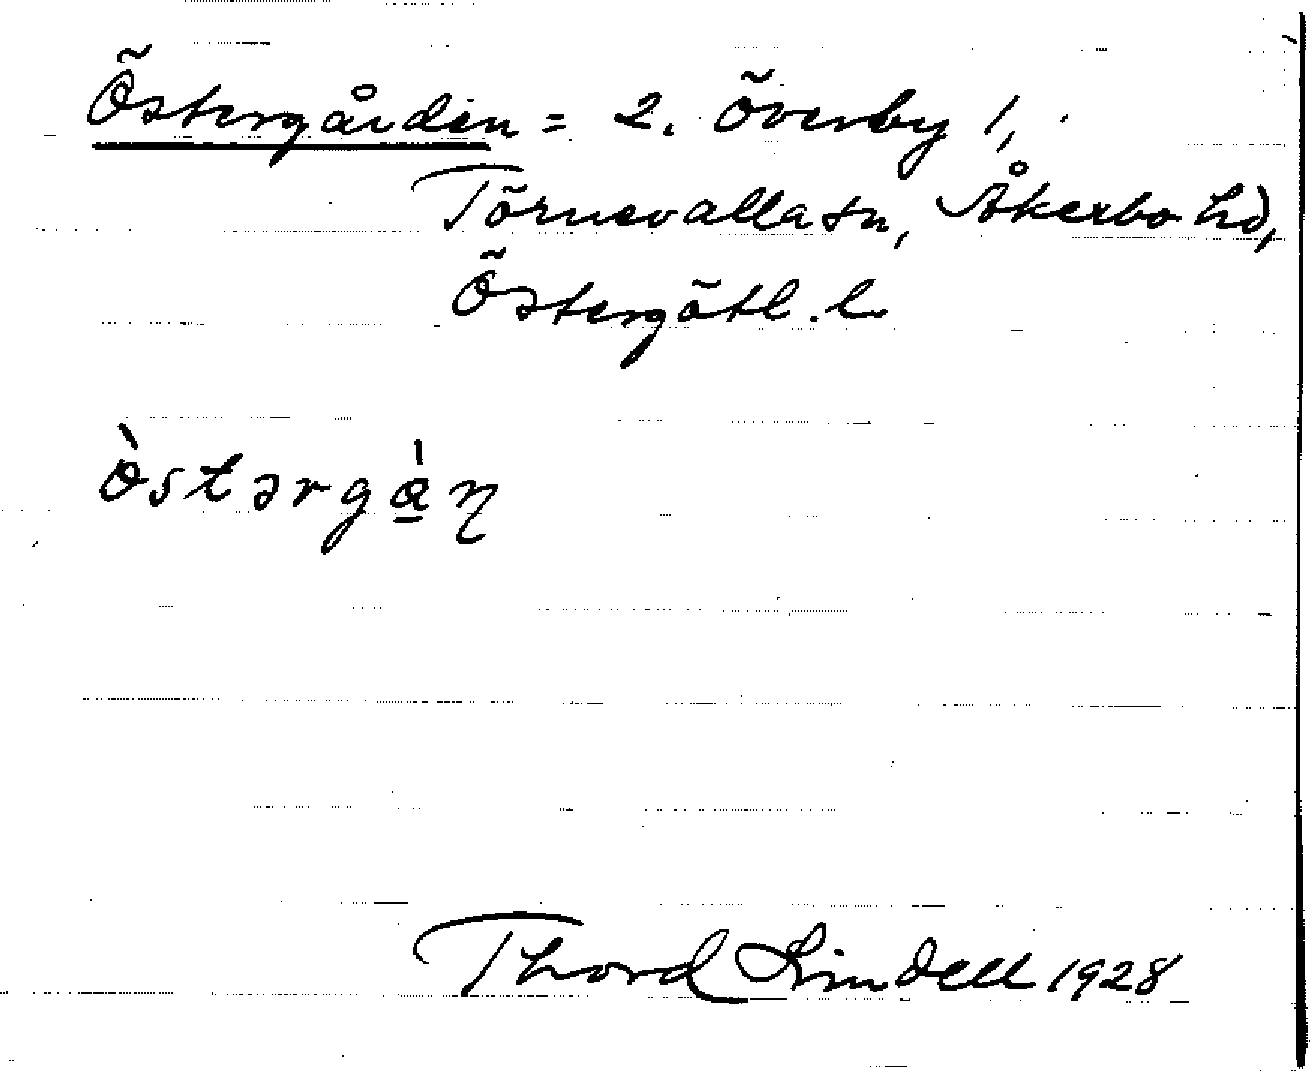 Östergården = 2. Överby 1,
Törnevalla sn, Åkerbo hd,
Östergötl. l.
ò̀stərgà̱ɳ
Thord Lindell 1928